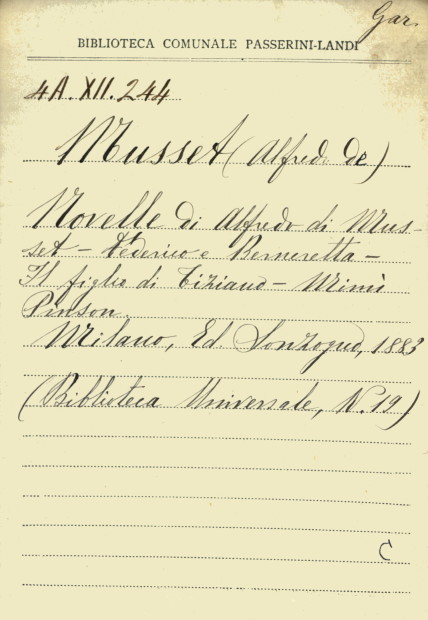 Gar.
BIBLIOTECA COMUNALE PASSERINI-LANDI
4A.XII.244
Musset (Alfredo De)
Novelle di Alfredo di Mus-
set - Federico e Berneretta -
Il figlio di Tiziano - Mimì
Pinson.
Milano, Ed. Sonzogno, 1883
(Biblioteca Universale, N. 19)
C